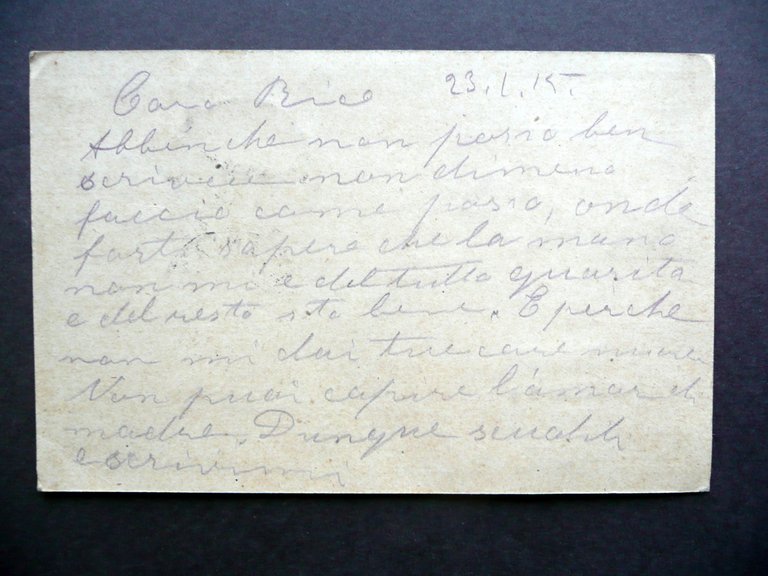 Caro Bice 23.1.15.
Abbenche non posso ben
scrivere nondimeno
faccio come posso, onde
farti sapere che la mano
non mi e del tutto guarita
e del resto sto bene. E perche
non mi dai tue care nuove
Non puoi capire l'amor di
madre. Dunque scuotiti
e scrivimi